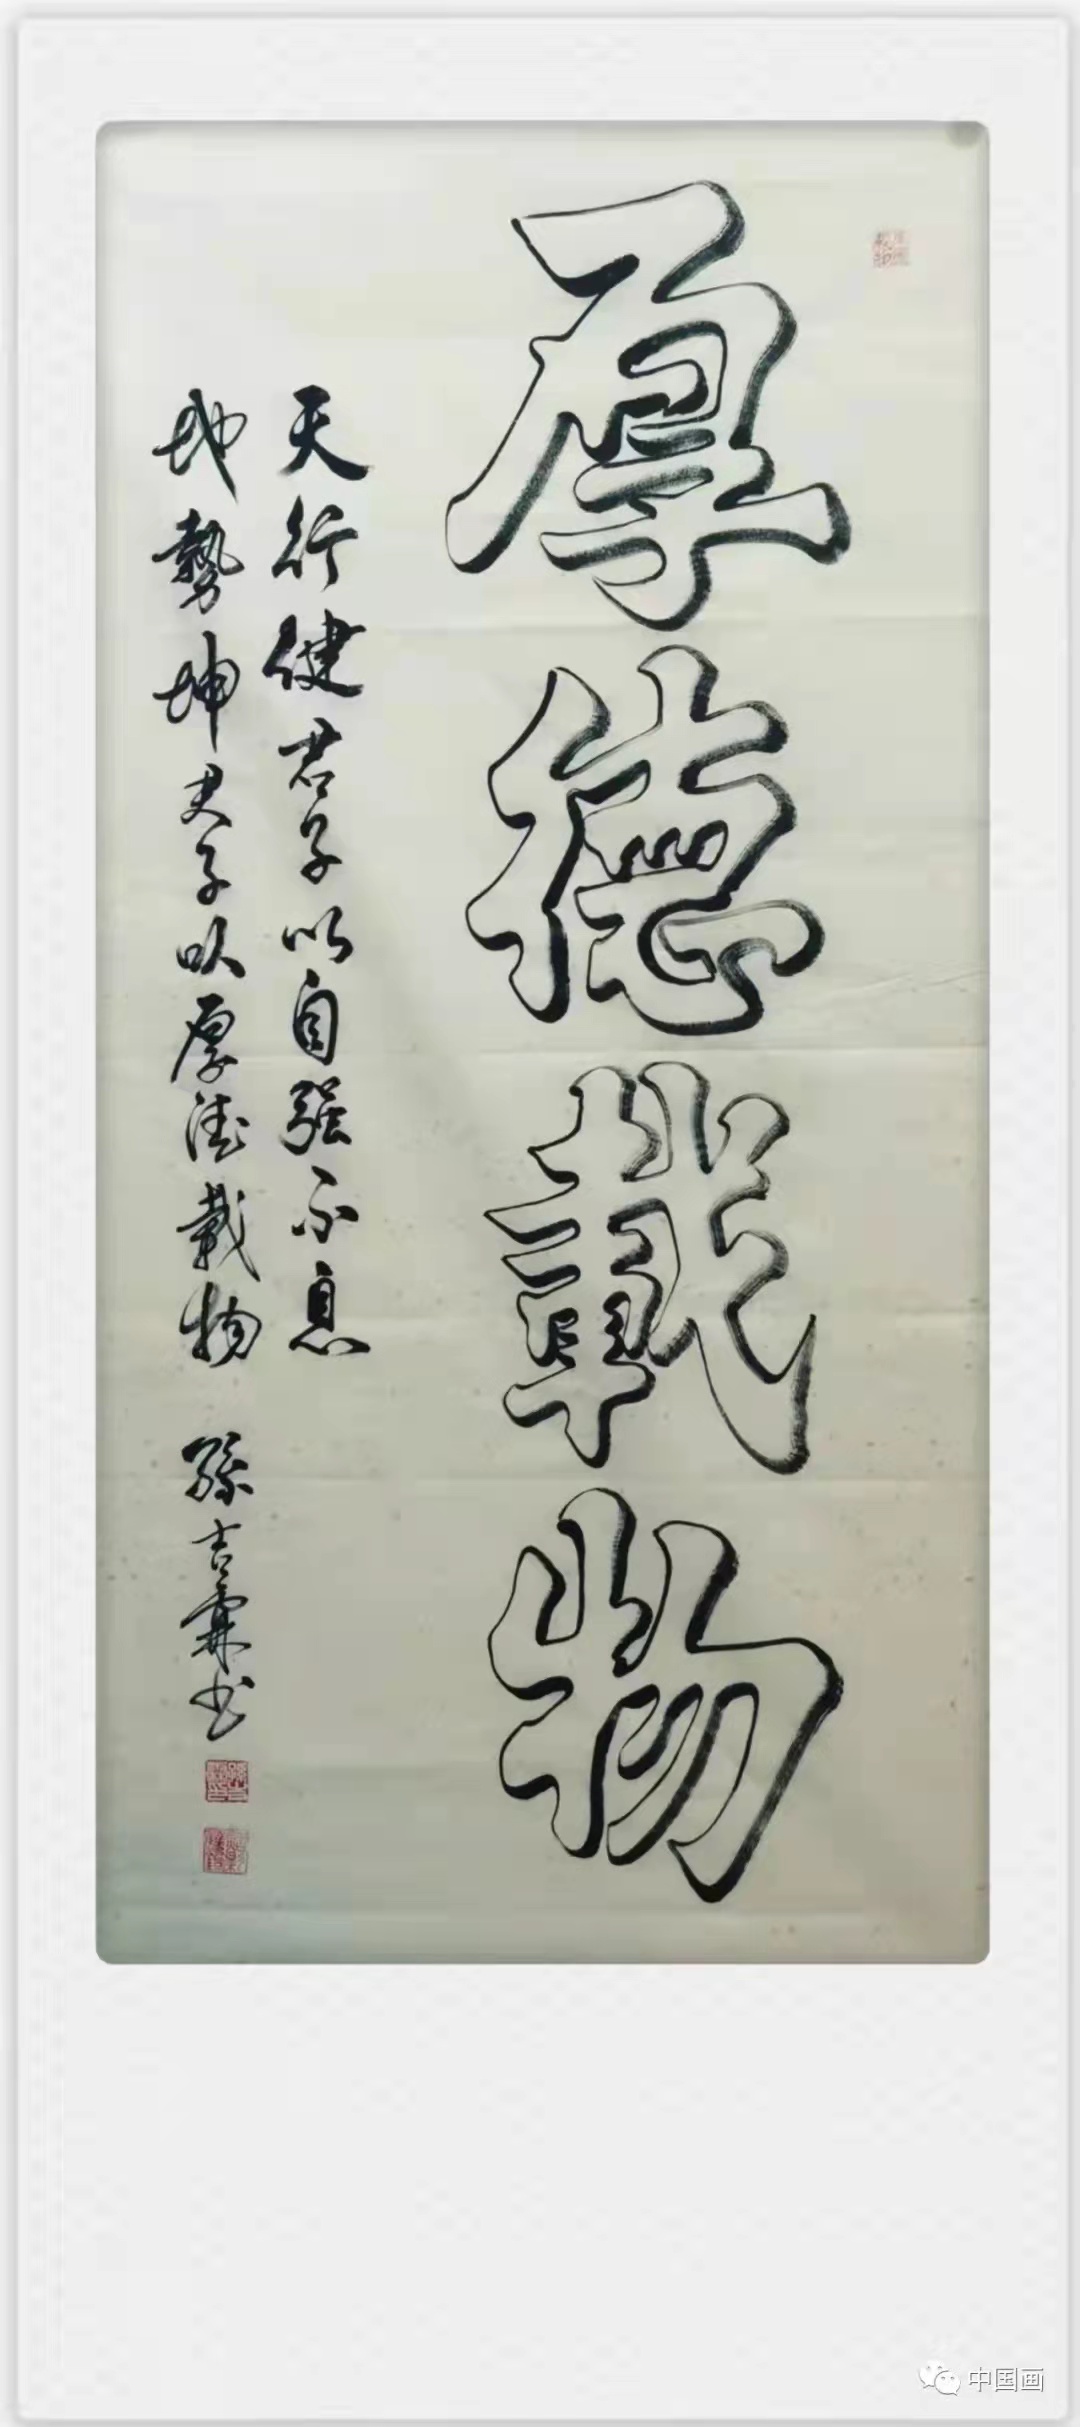 厚德载物
天行健君子以自强不息
地勢坤君子以厚德载物
孫吉霖书
中国画